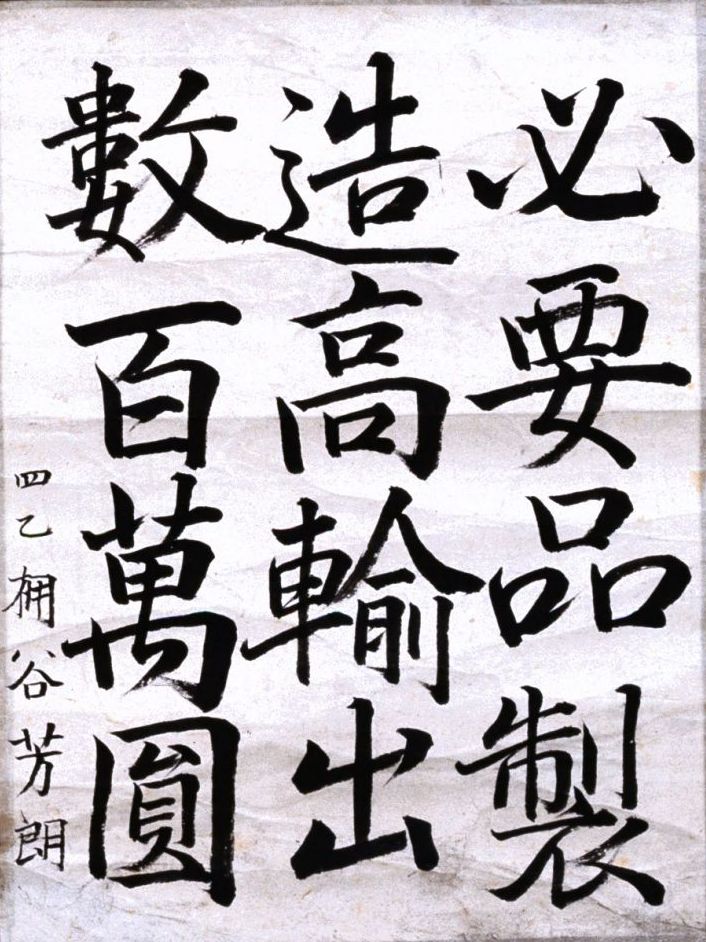 必要品製
造高輸出
數百萬圓
四乙 棚谷芳朗